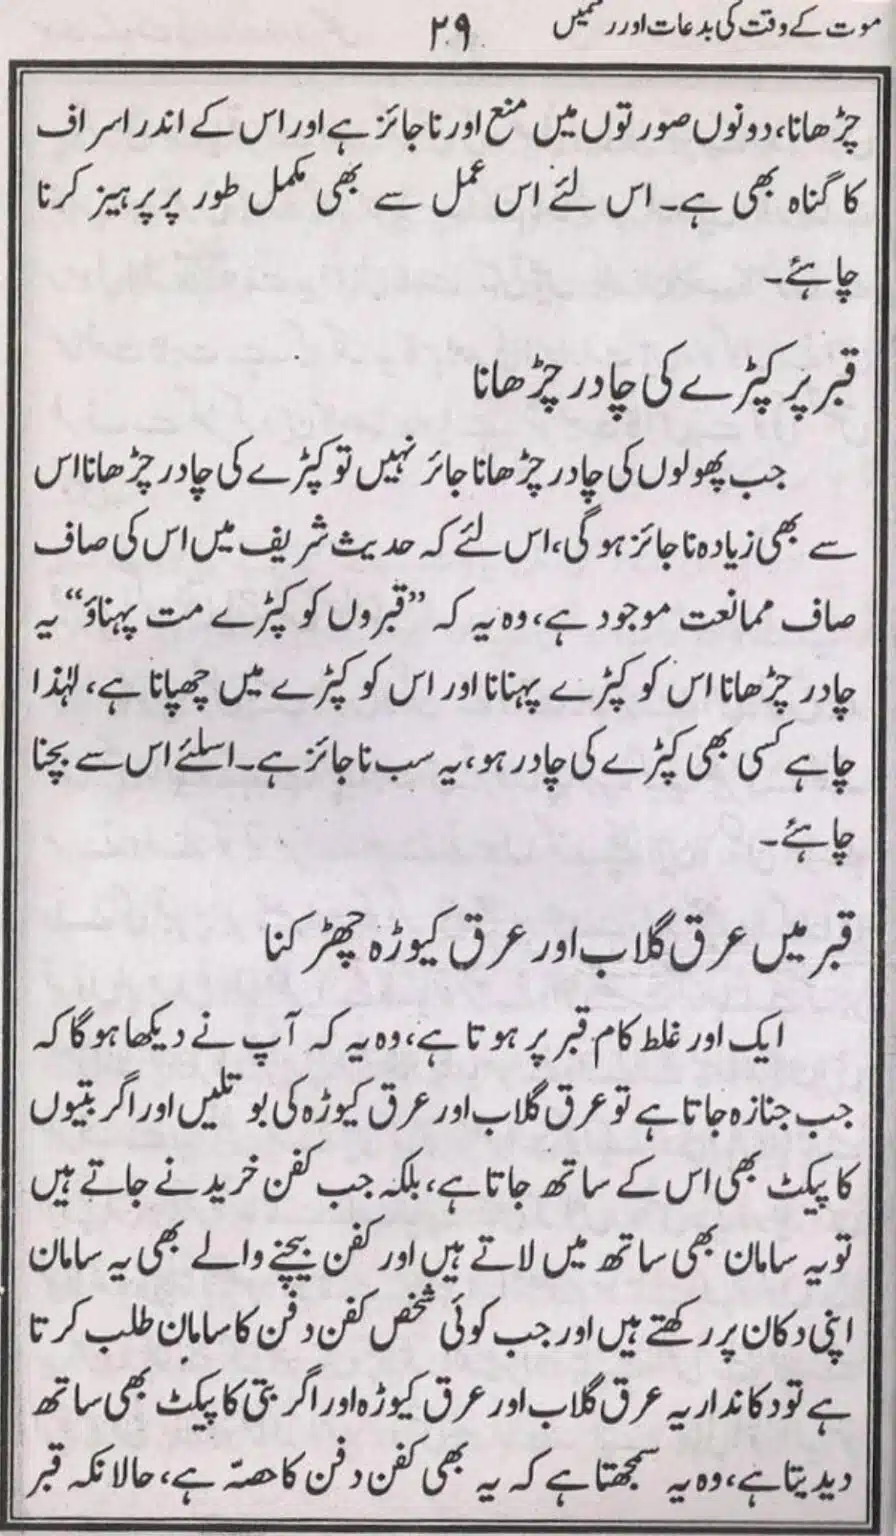 موت کے وقت کی بدعات اور رسمیں
۲۹
چڑھانا، دونوں صورتوں میں منع اور ناجائز ہے اور اس کے اندر اسراف
کا گناہ بھی ہے۔ اس لئے اس عمل سے بھی مکمل طور پر پرہیز کرنا
چاہئے۔
قبر پر کپڑے کی چادر چڑھانا
جب پھولوں کی چادر چڑھانا جائز نہیں تو کپڑے کی چادر چڑھانا اس
سے بھی زیادہ ناجائز ہوگی، اس لئے کہ حدیث شریف میں اس کی صاف
صاف ممانعت موجود ہے، وہ یہ کہ ”قبروں کو کپڑے مت پہناؤ“ یہ
چادر چڑھانا اس کو کپڑے پہنانا اور اس کو کپڑے میں چھپانا ہے، لہٰذا
چاہے کسی بھی کپڑے کی چادر ہو، یہ سب ناجائز ہے۔ اسلئے اس سے بچنا
چاہئے۔
قبر میں عرق گلاب اور عرق کیوڑہ چھڑکنا
ایک اور غلط کام قبر پر ہوتا ہے، وہ یہ کہ آپ نے دیکھا ہوگا کہ
جب جنازہ جاتا ہے تو عرق گلاب اور عرق کیوڑہ کی بوتلیں اور اگر بتیوں
کا پیکٹ بھی اس کے ساتھ جاتا ہے، بلکہ جب کفن خریدنے جاتے ہیں
تو یہ سامان بھی ساتھ میں لاتے ہیں اور کفن بیچنے والے بھی یہ سامان
اپنی دکان پر رکھتے ہیں اور جب کوئی شخص کفن دفن کا سامان طلب کرتا
ہے تو دکاندار یہ عرق گلاب اور عرق کیوڑہ اور اگر بتی کا پیکٹ بھی ساتھ
دیدیتا ہے، وہ یہ سمجھتا ہے کہ یہ بھی کفن دفن کا حصّہ ہے، حالانکہ قبر